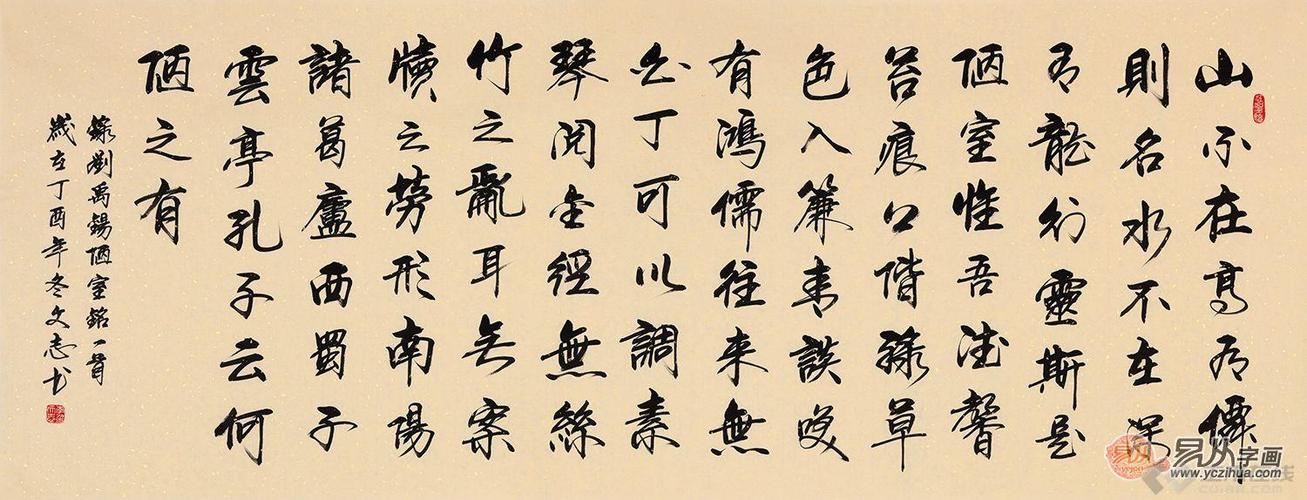 山不在高有僊
則名水不在深
有龍則靈斯是
陋室惟吾德馨
苔痕上階綠草
色入簾青談笑
有鴻儒往來無
白丁可以調素
琴閱金經無絲
竹之亂耳无案
牘之勞形南陽
諸葛廬西蜀子
雲亭孔子云何
陋之有
錄劉禹錫陋室銘一首
歲在丁酉年冬文志书
易从字画
www.yczihua.com